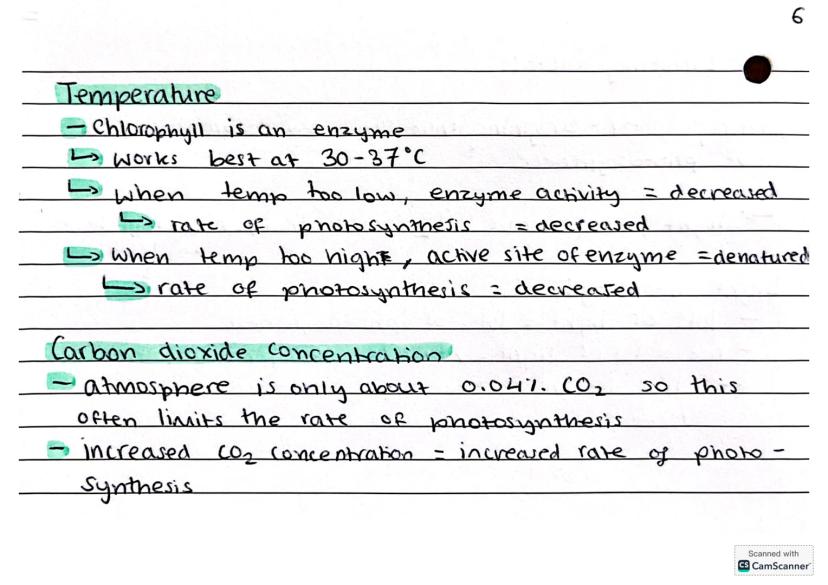 6
Temperature
- Chlorophyll is an enzyme
↳ works best at 30-37°C
↳ when temp too low, enzyme activity = decreased
↳ rate of photosynthesis = decreased
↳ when temp too high, active site of enzyme = denatured
↳ rate of photosynthesis = decreased
Carbon dioxide concentration
- atmosphere is only about 0.04% CO₂ so this
often limits the rate of photosynthesis
- increased CO₂ concentration = increased rate of photo-
synthesis
Scanned with
CS CamScanner